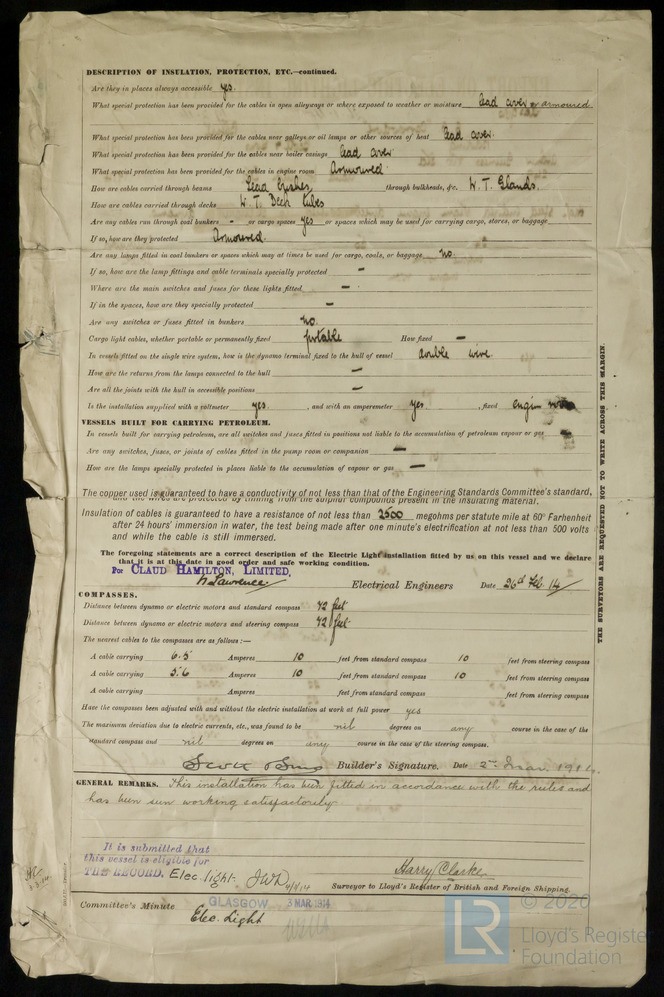 DESCRIPTION OF INSULATION, PROTECTION, ETC.—continued.
Are they in places always accessible yes.
What special protection has been provided for the cables in open alleyways or where exposed to weather or moisture lead cover or armoured
What special protection has been provided for the cables near galleys or oil lamps or other sources of heat lead cover.
What special protection has been provided for the cables near boiler casings lead cover
What special protection has been provided for the cables in engine room Armoured.
How are cables carried through beams Lead bushes through bulkheads, &c. W.T. Glands.
How are cables carried through decks W.T. Deck tubes
Are any cables run through coal bunkers - or cargo spaces yes or spaces which may be used for carrying cargo, stores, or baggage
If so, how are they protected Armoured.
Are any lamps fitted in coal bunkers or spaces which may at times be used for cargo, coals, or baggage no.
If so, how are the lamp fittings and cable terminals specially protected -
Where are the main switches and fuses for these lights fitted -
If in the spaces, how are they specially protected -
Are any switches or fuses fitted in bunkers no.
Cargo light cables, whether portable or permanently fixed portable How fixed -
In vessels fitted on the single wire system, how is the dynamo terminal fixed to the hull of vessel double wire.
How are the returns from the lamps connected to the hull -
Are all the joints with the hull in accessible positions -
Is the installation supplied with a voltmeter yes. , and with an amperemeter yes. , fixed engine room
VESSELS BUILT FOR CARRYING PETROLEUM.
In vessels built for carrying petroleum, are all switches and fuses fitted in positions not liable to the accumulation of petroleum vapour or gas -
Are any switches, fuses, or joints of cables fitted in the pump room or companion -
How are the lamps specially protected in places liable to the accumulation of vapour or gas -
The copper used is guaranteed to have a conductivity of not less than that of the Engineering Standards Committee's standard,
and the wires are protected by tinning from the sulphur compounds present in the insulating material.
Insulation of cables is guaranteed to have a resistance of not less than 2500 megohms per statute mile at 60° Farhenheit
after 24 hours' immersion in water, the test being made after one minute's electrification at not less than 500 volts
and while the cable is still immersed.
The foregoing statements are a correct description of the Electric Light installation fitted by us on this vessel and we declare
that it is at this date in good order and safe working condition.
For CLAUD HAMILTON, LIMITED,
Lawrence Electrical Engineers Date 26th Feb. 14
COMPASSES.
Distance between dynamo or electric motors and standard compass 72 feet
Distance between dynamo or electric motors and steering compass 72 feet
The nearest cables to the compasses are as follows:—
A cable carrying 6.5 Amperes 10 feet from standard compass 10 feet from steering compass
A cable carrying 5.6 Amperes 10 feet from standard compass 10 feet from steering compass
A cable carrying Amperes feet from standard compass feet from steering compass
Have the compasses been adjusted with and without the electric installation at work at full power yes
The maximum deviation due to electric currents, etc., was found to be nil degrees on any course in the case of the
standard compass and nil degrees on any course in the case of the steering compass.
Scott & Sons Builder's Signature. Date 2nd Mar 1914.
GENERAL REMARKS. This installation has been fitted in accordance with the rules and
has been seen working satisfactorily
It is submitted that
this vessel is eligible for
THE RECORD. Elec light. JWD 4/3/14
Harry Clarke
Surveyor to Lloyd's Register of British and Foreign Shipping.
Committee's Minute GLASGOW 3 MAR. 1914
Elec. Light
THE SURVEYORS ARE REQUESTED NOT TO WRITE ACROSS THIS MARGIN.
© 2020
LR
Lloyd's Register
Foundation